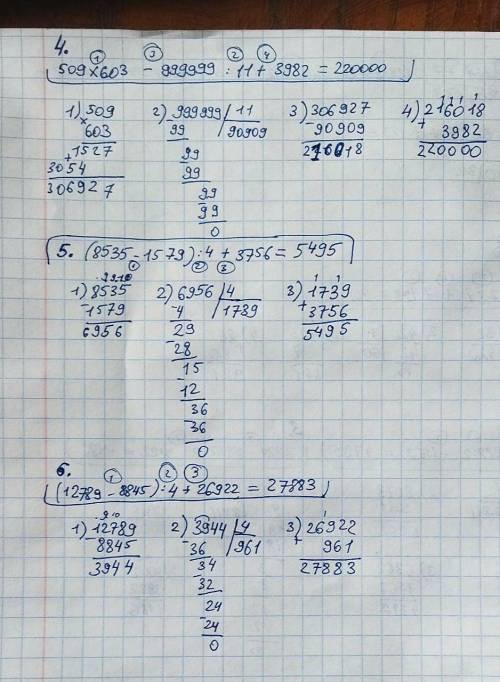 4.
① ③ ② ④
509×603 - 999999 : 11 + 3982 = 220000
1) 509
× 603
1527
+ 3054
306927
2) 999999 | 11
99 | 90909
99
99
99
99
0
3) 306927
- 90909
216018
4) 216018
+ 3982
220000
5. (8535 - 1579) : 4 + 3756 = 5495
① ② ③
1) 8535
- 1579
6956
2) 6956 | 4
- 4 | 1789
29
- 28
15
- 12
36
- 36
0
3) 1739
+ 3756
5495
6.
① ② ③
(12789 - 8845) : 4 + 26922 = 27883
1) 12789
- 8845
3944
2) 3944 | 4
- 36 | 961
34
- 32
24
- 24
0
3) 26922
+ 961
27883